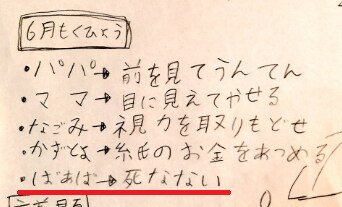 6月もくひょう
・パパ→前を見てうんてん
・ママ→目に見えてやせる
・なごみ→視力を取りもどせ
・かずとよ→紙のお金をあつめる
・ばあば→死なない